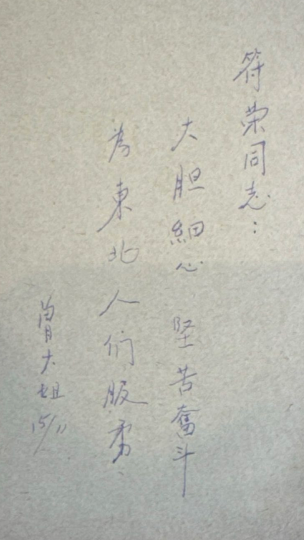 符荣同志：
大胆細心 坚苦奮斗
為東北人们服务.
曾大姐
15/11